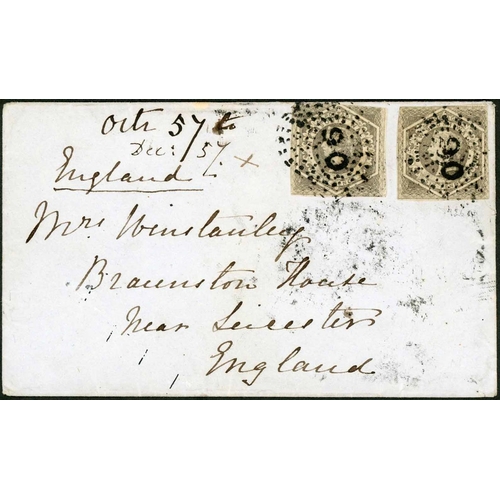 Octr 57 to
Dec: /57 x
England
Mrs Winstanley
Braunston House
Near Leicester
England
05
05